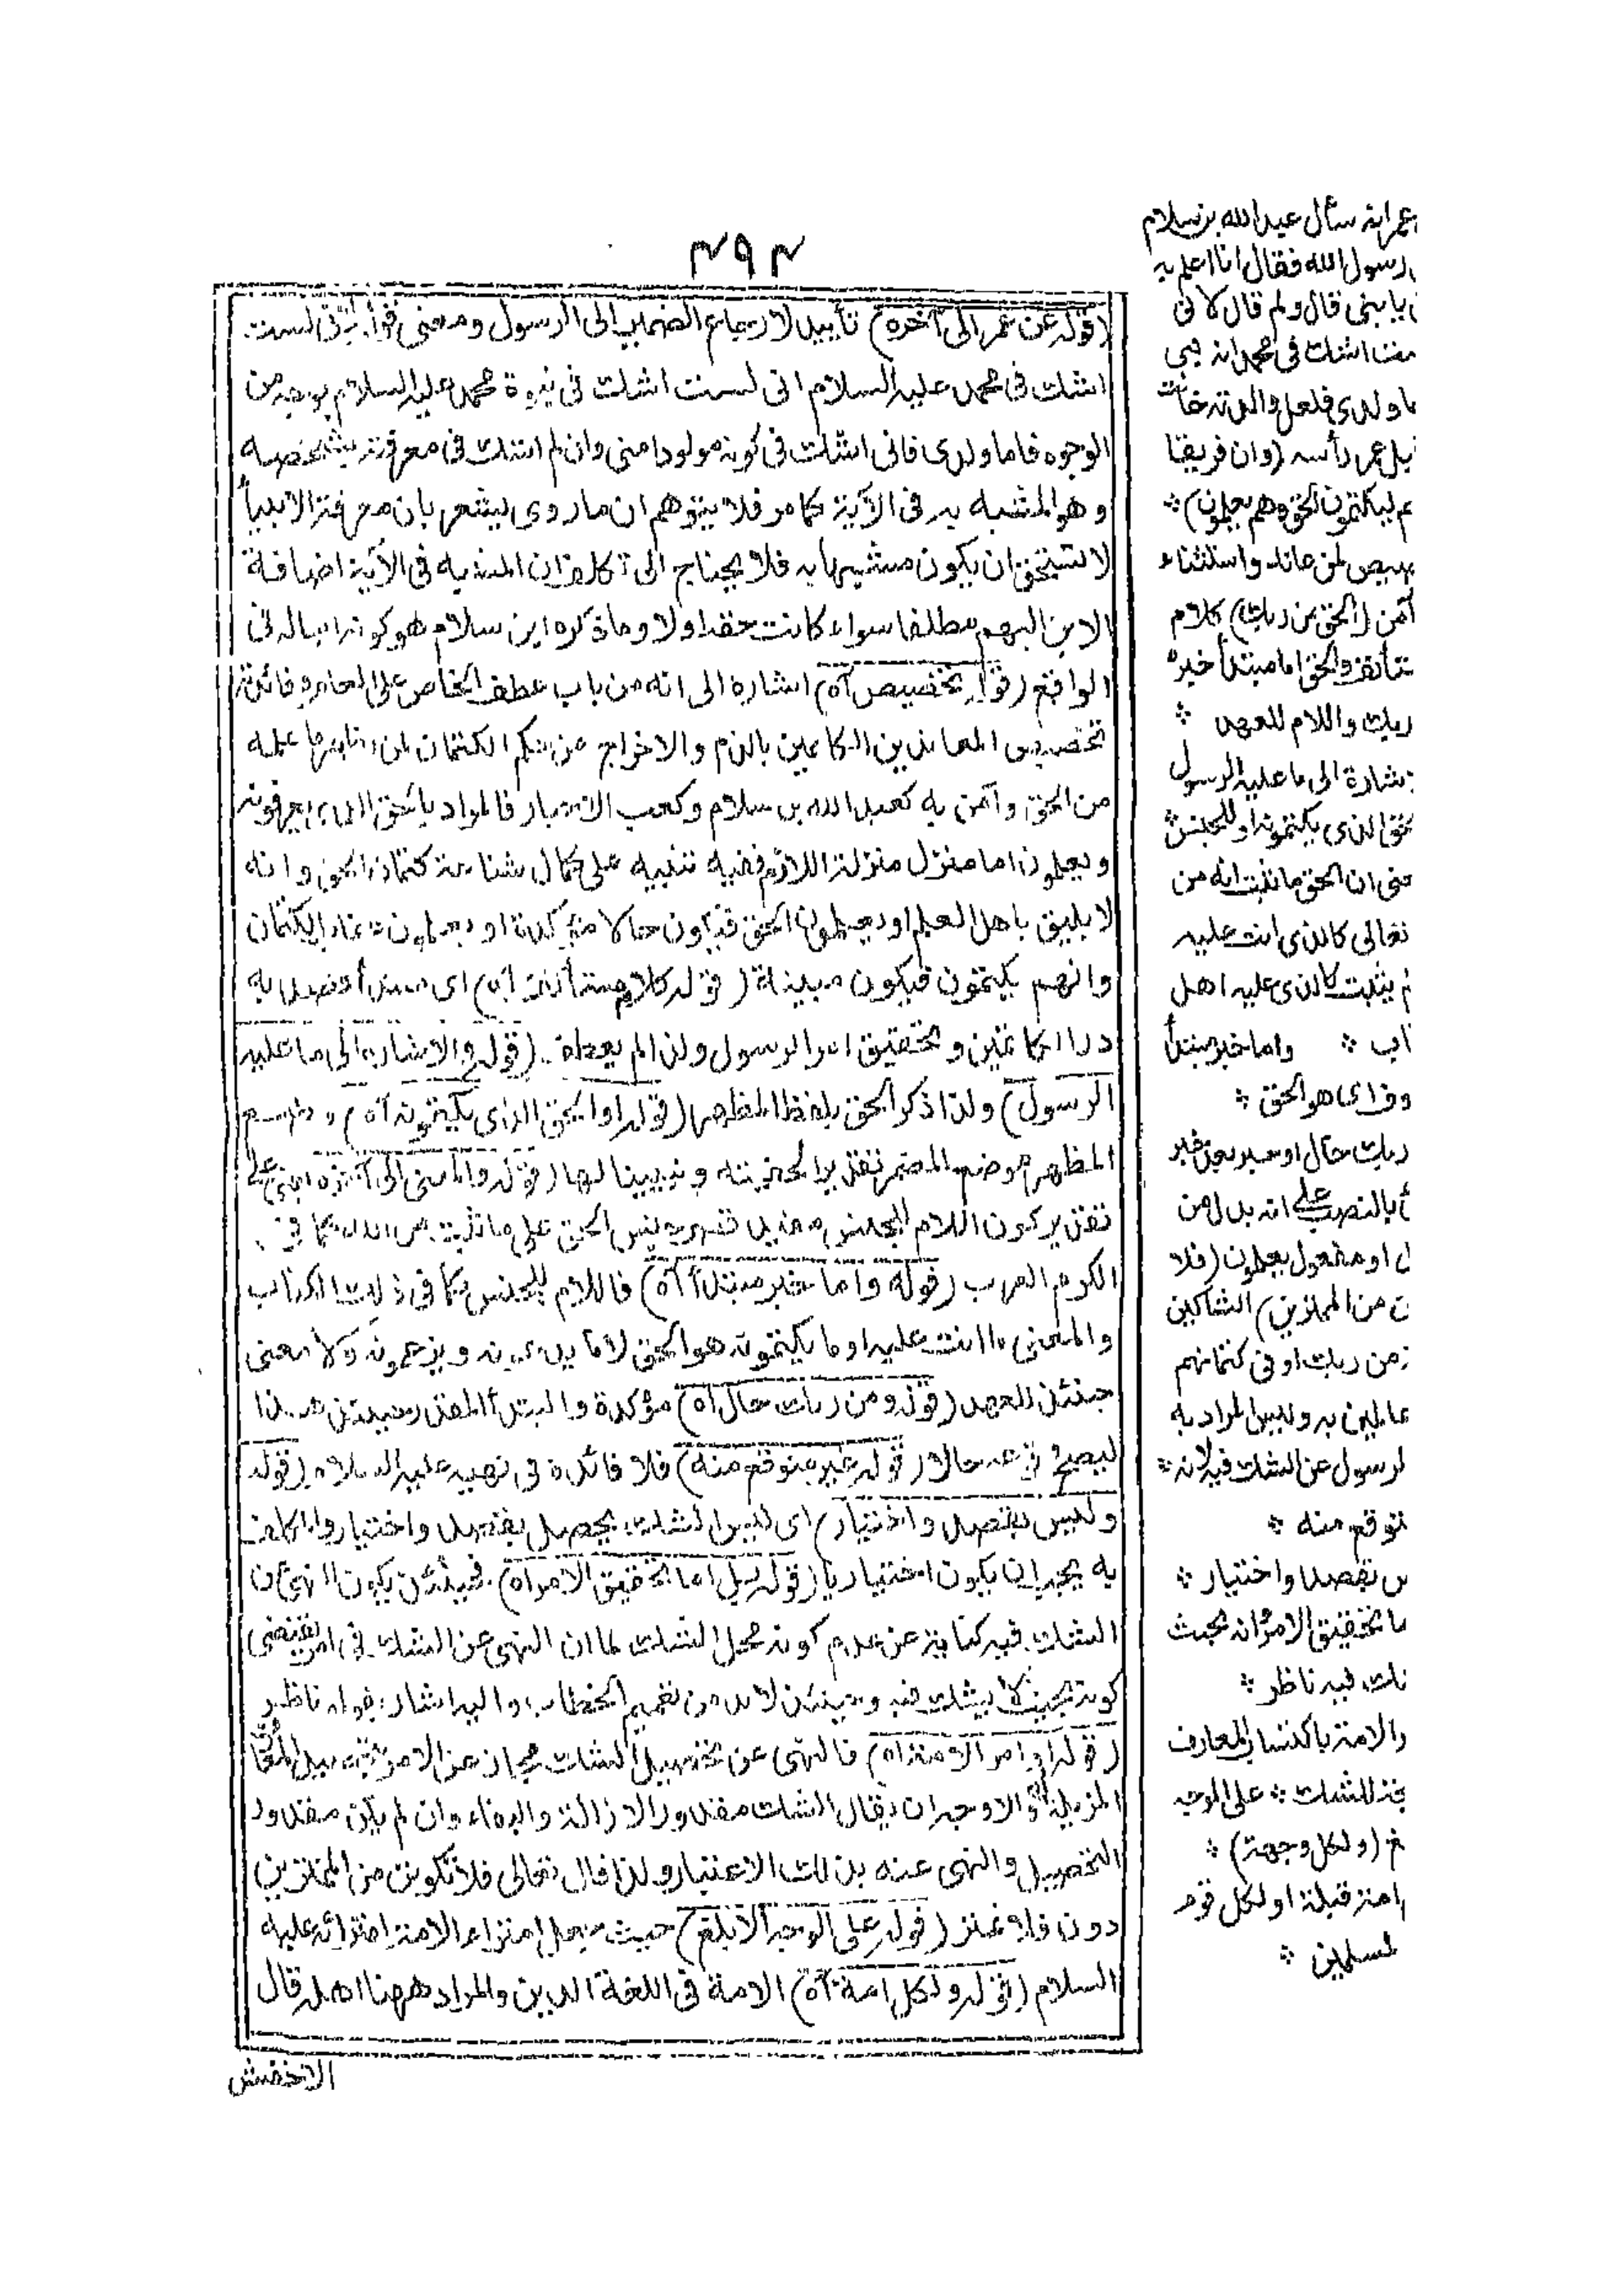 ٣٩٣
(قوله عن عمر الى آخره) تأييد لارجاع الضمير الى الرسول ومعنى لست
اشك فى محمد عليه السلام انى لست اشك فى نبوة محمد عليه السلام بوجه من
الوجوه فاما ولدى فانى اشك فى كونه مولودا منى وان لم اشك فى معرفته بشخصه
وهو المشبه به فى الآية كما مر فلا يتوهم ان ما روى يشعر بان معرفة الابناء
لا تستحق ان يكون مشبها به فلا يحتاج الى ان المشبه به فى الآية اضافة
الابن اليهم مطلقا سواء كانت حقة اولا وما ذكره ابن سلام هو كونه ابنا له فى
الواقع (قوله تخصيص آه) اشارة الى انه من باب عطف الخاص على العام وفائدته
تخصيص المعاندين الكاتمين بالذم والاخراج عن حكم الكتمان لمن علمه
من الحق وآمن به كعبد الله بن سلام وكعب الاحبار فالمراد بالحق الذى يعرفونه
ويعلمون اما منزل منزلة اللازم ففيه تنبيه على كمال شناعة كتمان الحق وانه
لا يليق باهل العلم او يعلمون الحق فيكون حالا مؤكدة او يعلمون عقاب الكتمان
وانهم يكتمون فيكون مبينة (قوله كلام مستأنف آه) اى مبتدأ قصد به
رد الكاتمين وتحقيق امر الرسول ولذا لم يعطف (قوله والاشارة الى ما عليه
الرسول) ولذا ذكر الحق بلفظ المظهر (قوله او الحق الذى يكتمونه آه) وضع
المظهر موضع المضمر تقريرا لحقيته وتبيينا لها (قوله والمعنى الى آخره) يعنى على
تقدير كون اللام للجنس يفيد قصر جنس الحق على ما ثبت من الله كما فى
الكرم العرب (قوله واما خبر مبتدأ آه) فاللام للجنس كما فى ذلك الكتاب
والمعنى ما انت عليه او ما يكتمونه هو الحق لا ما يدعونه ويزعمونه ولا معنى
حينئذ للعهد (قوله ومن ربك حال آه) مؤكدة والمبتدأ المقدر حينئذ هذا
ليصح حالا (قوله غير متوقع منه) فلا فائدة فى نهيه عليه السلام (قوله
وليس بقصد واختيار) اى ليس الشك يحصل بقصد واختيار والمكلف
به يجب ان يكون اختياريا (قوله بل اما تحقيق الامر آه) فحينئذ يكون النهى عن
الشك فيه كناية عن عدم كونه محل الشك لما ان النهى عن الشك فى امر يقتضى
كونه بحيث لا يشك فيه وحينئذ لابد من تعميم الخطاب واليه اشار بقوله ناظر
(قوله او امر الامة آه) فالنهى عن تحصيل الشك مجاز عن الامر بتحصيل المعارف
المزيلة له والاوجه ان يقال الشك مقدور الازالة والبقاء وان لم يكن مقدور
التحصيل والنهى عنه بذلك الاعتبار ولذا قال تعالى فلا تكونن من الممترين
دون فلا تمتر (قوله على الوجه الابلغ) حيث جعل امتراء الامة امترائه عليه
السلام (قوله ولكل امة آه) الامة فى اللغة الدين والمراد ههنا اهله قال
الاخفش
عمر انه سأل عبد الله بن سلام
رسول الله فقال انا اعلم به
يا بنى قال ولم قال لا نى
اشك فى محمد انه نبى
ما ولدى فلعل والدته خانت
بل عمر رأسه (وان فريقا
م ليكتمون الحق وهم يعلمون) *
صيص لمن عاند واستثناء
آمن (الحق من ربك) كلام
ستأنف والحق اما مبتدأ خبره
ربك واللام للعهد *
شارة الى ما عليه الرسول
حق الذى يكتمونه او للجنس *
عنى ان الحق ما ثبت انه من
تعالى كالذى انت عليه
م يثبت كالذى عليه اهل
اب * واما خبر مبتدأ
وف اى هو الحق *
ربك حال او خبر بعد خبر
أ بالنصب على انه بدل من
ل او مفعول يعلمون (فلا
ن من الممترين) الشاكين
من ربك او فى كتمانهم
عالمين به وليس المراد به
لرسول عن الشك فيه لانه *
توقع منه *
س بقصد واختيار *
ما تحقيق الامر وانه بحيث
ك فيه ناظر *
ر الامة باكتساب المعارف
حة للشك * على الوجه
غ (ولكل وجهة) *
امة قبلة او لكل قوم
لمسلمين *